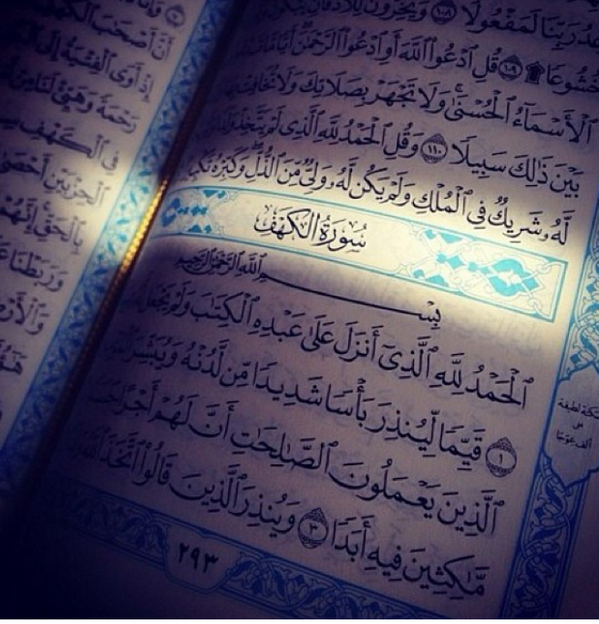 رَبِّنَا لَمَفْعُولًا ١٠٨ وَيَخِرُّونَ لِلْأَذْقَانِ يَبْكُونَ
خُشُوعًا ۩ ١٠٩ قُلِ ٱدْعُوا۟ ٱللَّهَ أَوِ ٱدْعُوا۟ ٱلرَّحْمَٰنَ أَيًّا مَّا
ٱلْأَسْمَآءُ ٱلْحُسْنَىٰ وَلَا تَجْهَرْ بِصَلَاتِكَ وَلَا تُخَافِتْ
بَيْنَ ذَٰلِكَ سَبِيلًا ١١٠ وَقُلِ ٱلْحَمْدُ لِلَّهِ ٱلَّذِى لَمْ يَتَّخِذْ
لَّهُۥ شَرِيكٌ فِى ٱلْمُلْكِ وَلَمْ يَكُن لَّهُۥ وَلِىٌّ مِّنَ ٱلذُّلِّ وَكَبِّرْهُ
سُورَةُ الكَهْفِ
بِسْمِ ٱللَّهِ ٱلرَّحْمَٰنِ ٱلرَّحِيمِ
ٱلْحَمْدُ لِلَّهِ ٱلَّذِىٓ أَنزَلَ عَلَىٰ عَبْدِهِ ٱلْكِتَٰبَ وَلَمْ يَجْعَل
١ قَيِّمًا لِّيُنذِرَ بَأْسًا شَدِيدًا مِّن لَّدُنْهُ وَيُبَشِّرَ
ٱلَّذِينَ يَعْمَلُونَ ٱلصَّٰلِحَٰتِ أَنَّ لَهُمْ أَجْرًا
مَّٰكِثِينَ فِيهِ أَبَدًا ٣ وَيُنذِرَ ٱلَّذِينَ قَالُوا۟ ٱتَّخَذَ ٱللَّهُ
٢٩٣
سكتة لطيفة
ألف عوجا
أَنَّ أَصْحَٰبَ
إِذْ أَوَى ٱلْفِتْيَةُ إِلَى
رَحْمَةً وَهَيِّئْ لَنَا مِنْ
فِى ٱلْكَهْفِ
ٱلْحِزْبَيْنِ أَحْصَىٰ
بِٱلْحَقِّ إِنَّهُمْ
وَرَبَطْنَا